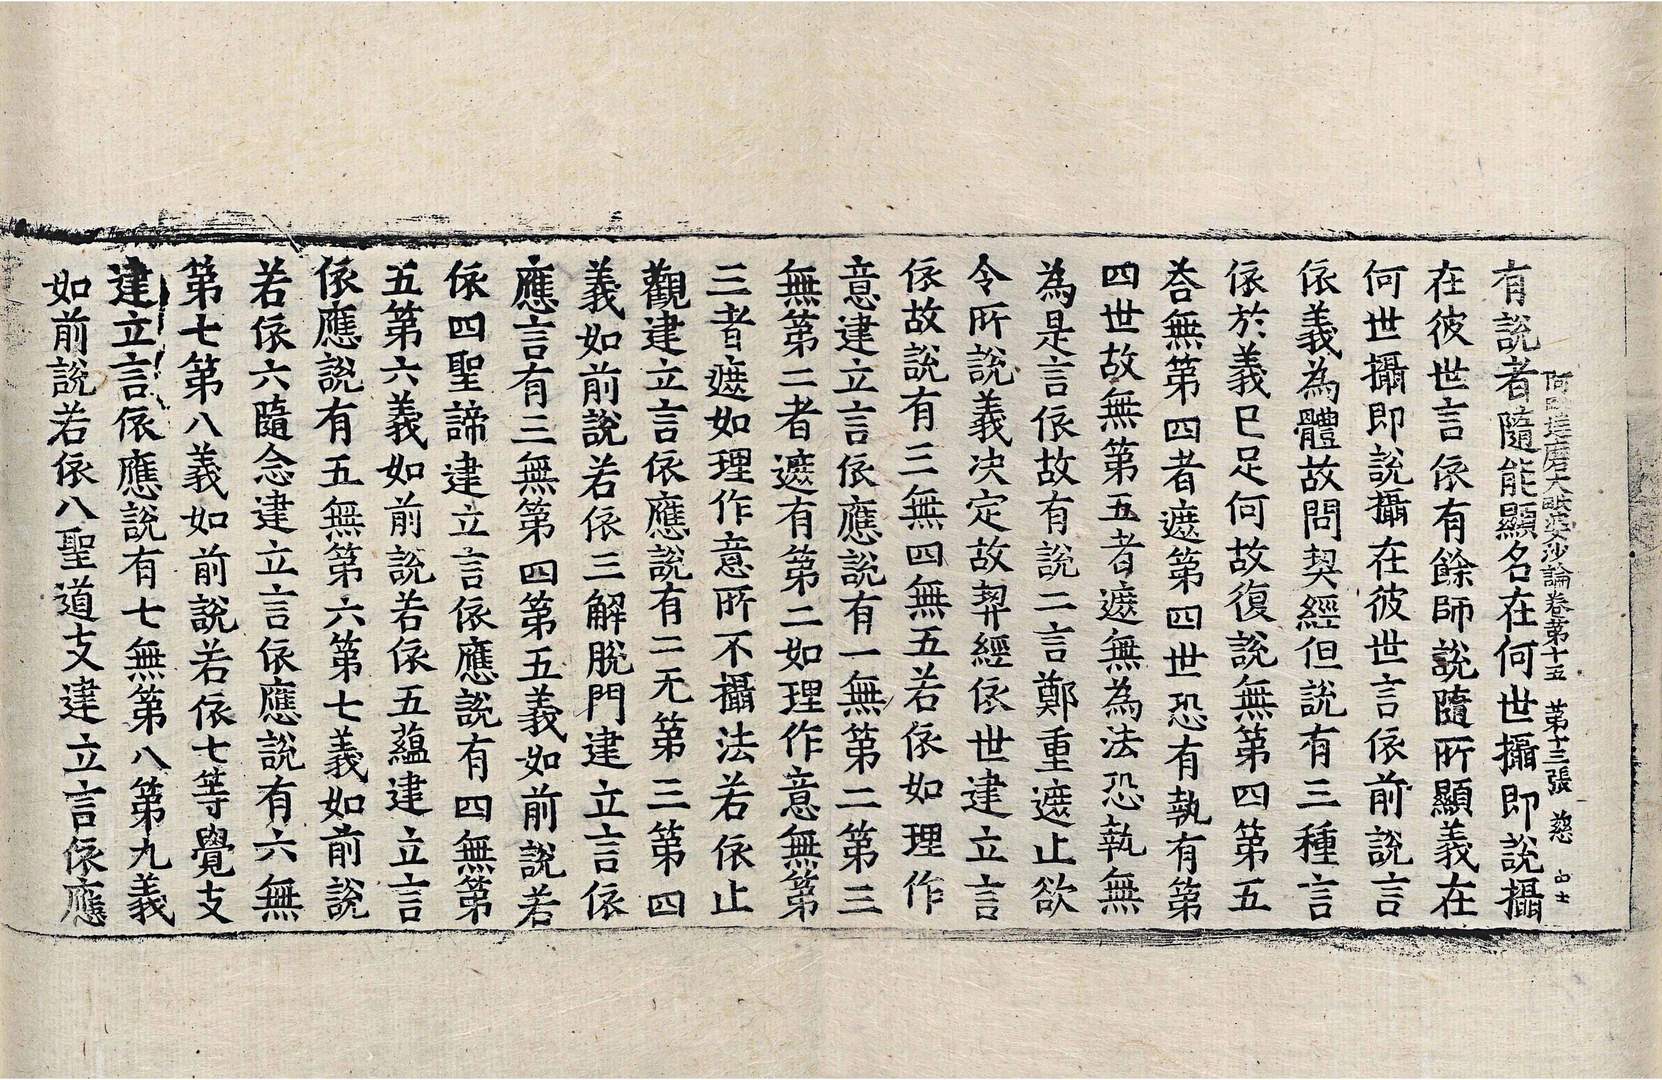 阿毗達磨大毗婆沙論卷第十五　第十三張　慈
有說者隨能顯名在何世攝即說攝
在彼世言依有餘師說隨所顯義在
何世攝即說攝在彼世言依前說言
依義為體故問契經但說有三種言
依於義已足何故復說無第四第五
荅無第四者遮第四世恐有執有第
四世故無第五者遮無為法恐執無
為是言依故有說二言鄭重遮止欲
令所說義決定故契經依世建立言
依故說有三無四無五若依如理作
意建立言依應說有一無第二第三
無第二者遮有第二如理作意無第
三者遮如理作意所不攝法若依止
觀建立言依應說有二无第三第四
義如前說若依三解脫門建立言依
應言有三無第四第五義如前說若
依四聖諦建立言依應說有四無第
五第六義如前說若依五蘊建立言
依應說有五無第六第七義如前說
若依六隨念建立言依應說有六無
第七第八義如前說若依七等覺支
建立言依應說有七無第八第九義
如前說若依八聖道支建立言依應